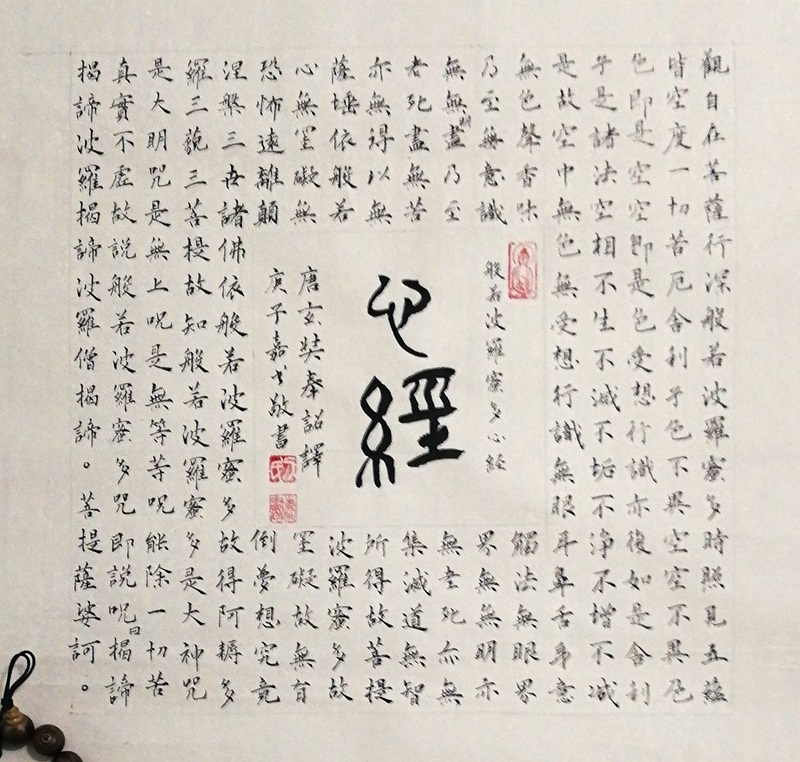 觀自在菩薩行深般若波羅蜜多時照見五蘊
皆空度一切苦厄舍利子色不異空空不異色
色即是空空即是色受想行識亦復如是舍利
子是諸法空相不生不滅不垢不淨不增不減
是故空中無色無受想行識無眼耳鼻舌身意
無色聲香味
觸法無眼界
乃至無意識
界無無明亦
無無明盡乃至
無老死亦無
老死盡無苦
集滅道無智
亦無得以無
所得故菩提
薩埵依般若
波羅蜜多故
心無罣礙無
罣礙故無有
恐怖遠離顛
倒夢想究竟
涅槃三世諸佛依般若波羅蜜多故得阿耨多
羅三藐三菩提故知般若波羅蜜多是大神呪
是大明呪是無上呪是無等等呪能除一切苦
真實不虛故說般若波羅蜜多呪即說呪曰揭諦
揭諦波羅揭諦波羅僧揭諦。菩提薩婆訶。
般若波羅蜜多心経
心經
唐玄奘奉詔譯
庚子嘉敬書